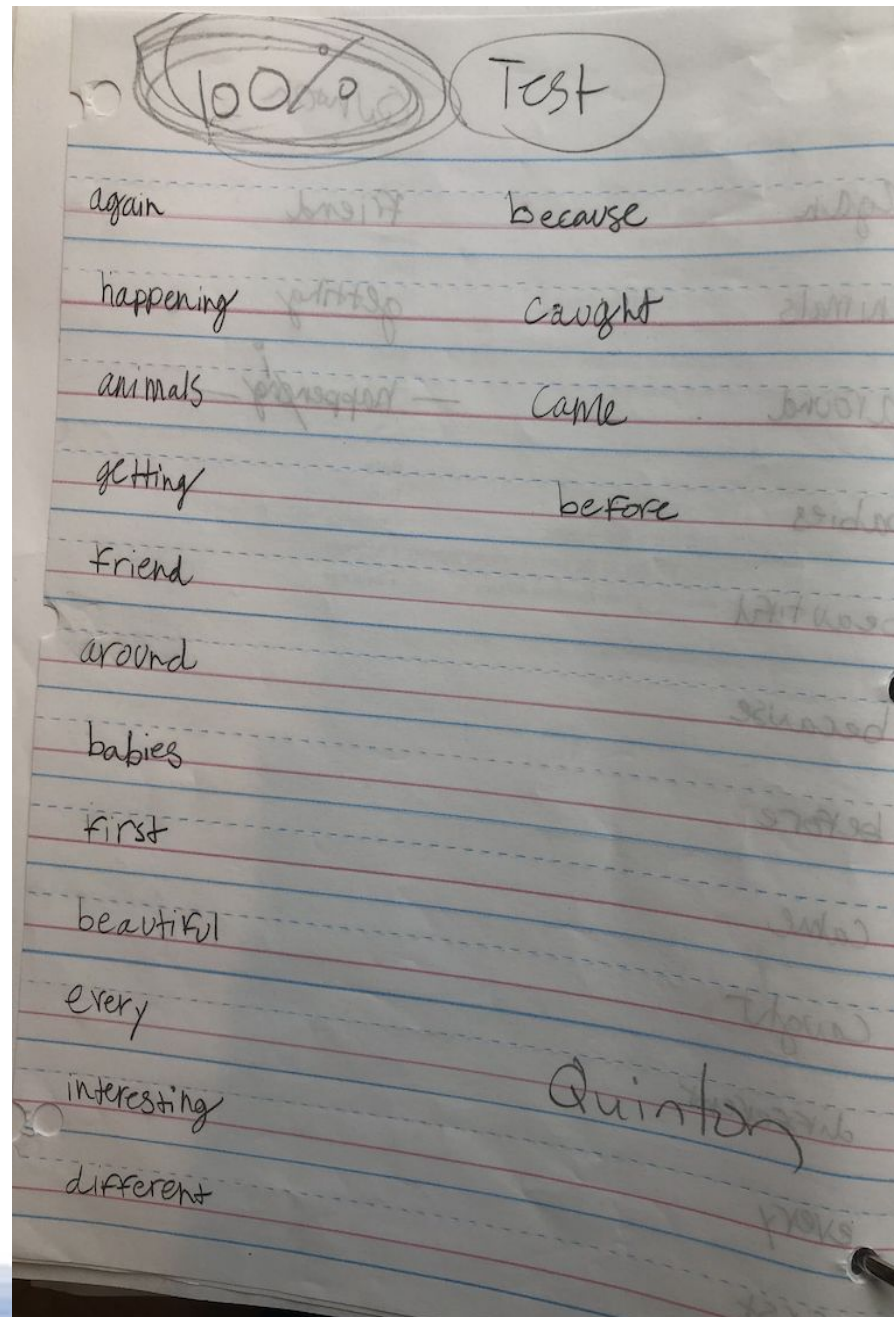 100% Test
again
happening
animals
getting
friend
around
babies
first
beautiful
every
interesting
different
because
caught
came
before
Quinton